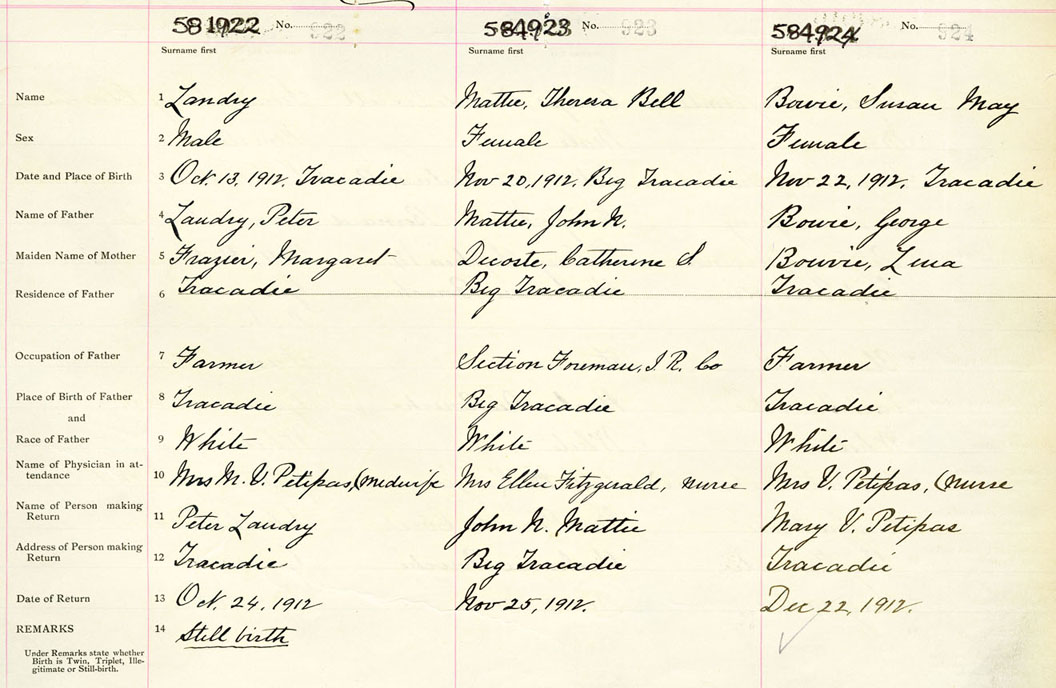 581922 No. 922 584923 No. 923 584924 No. 924
Surname first Surname first Surname first
Name 1 Landry Mattie, Theresa Bell Bowie, Susan May
Sex 2 Male Female Female
Date and Place of Birth 3 Oct. 13, 1912, Tracadie Nov 20, 1912, Big Tracadie Nov 22, 1912, Tracadie
Name of Father 4 Landry, Peter Mattie, John N. Bowie, George
Maiden Name of Mother 5 Frazier, Margaret Decoste, Catherine S. Bowie, Lena
Residence of Father 6 Tracadie Big Tracadie Tracadie
Occupation of Father 7 Farmer Section Foreman, I. R. Co Farmer
Place of Birth of Father 8 Tracadie Big Tracadie Tracadie
and
Race of Father 9 White White White
Name of Physician in at-
tendance 10 Mrs M. V. Petipas, (midwife Mrs Ellen Fitzgerald, nurse Mrs V. Petipas, (nurse
Name of Person making
Return 11 Peter Landry John N. Mattie Mary V. Petipas
Address of Person making
Return 12 Tracadie Big Tracadie Tracadie
Date of Return 13 Oct. 24, 1912 Nov 25, 1912. Dec 22, 1912.
REMARKS 14 Still birth
Under Remarks state whether
Birth is Twin, Triplet, Ille-
gitimate or Still-birth.